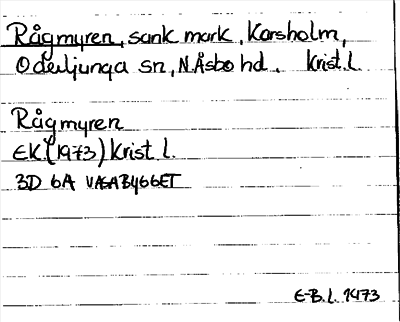 Rågmyren, sank mark, Karsholm,
Oderljunga sn, N.Åsbo hd. Krist.l.
Rågmyren
EK (1973) Krist l.
3D 6A VÄGABYGGET
E-B.L. 1973